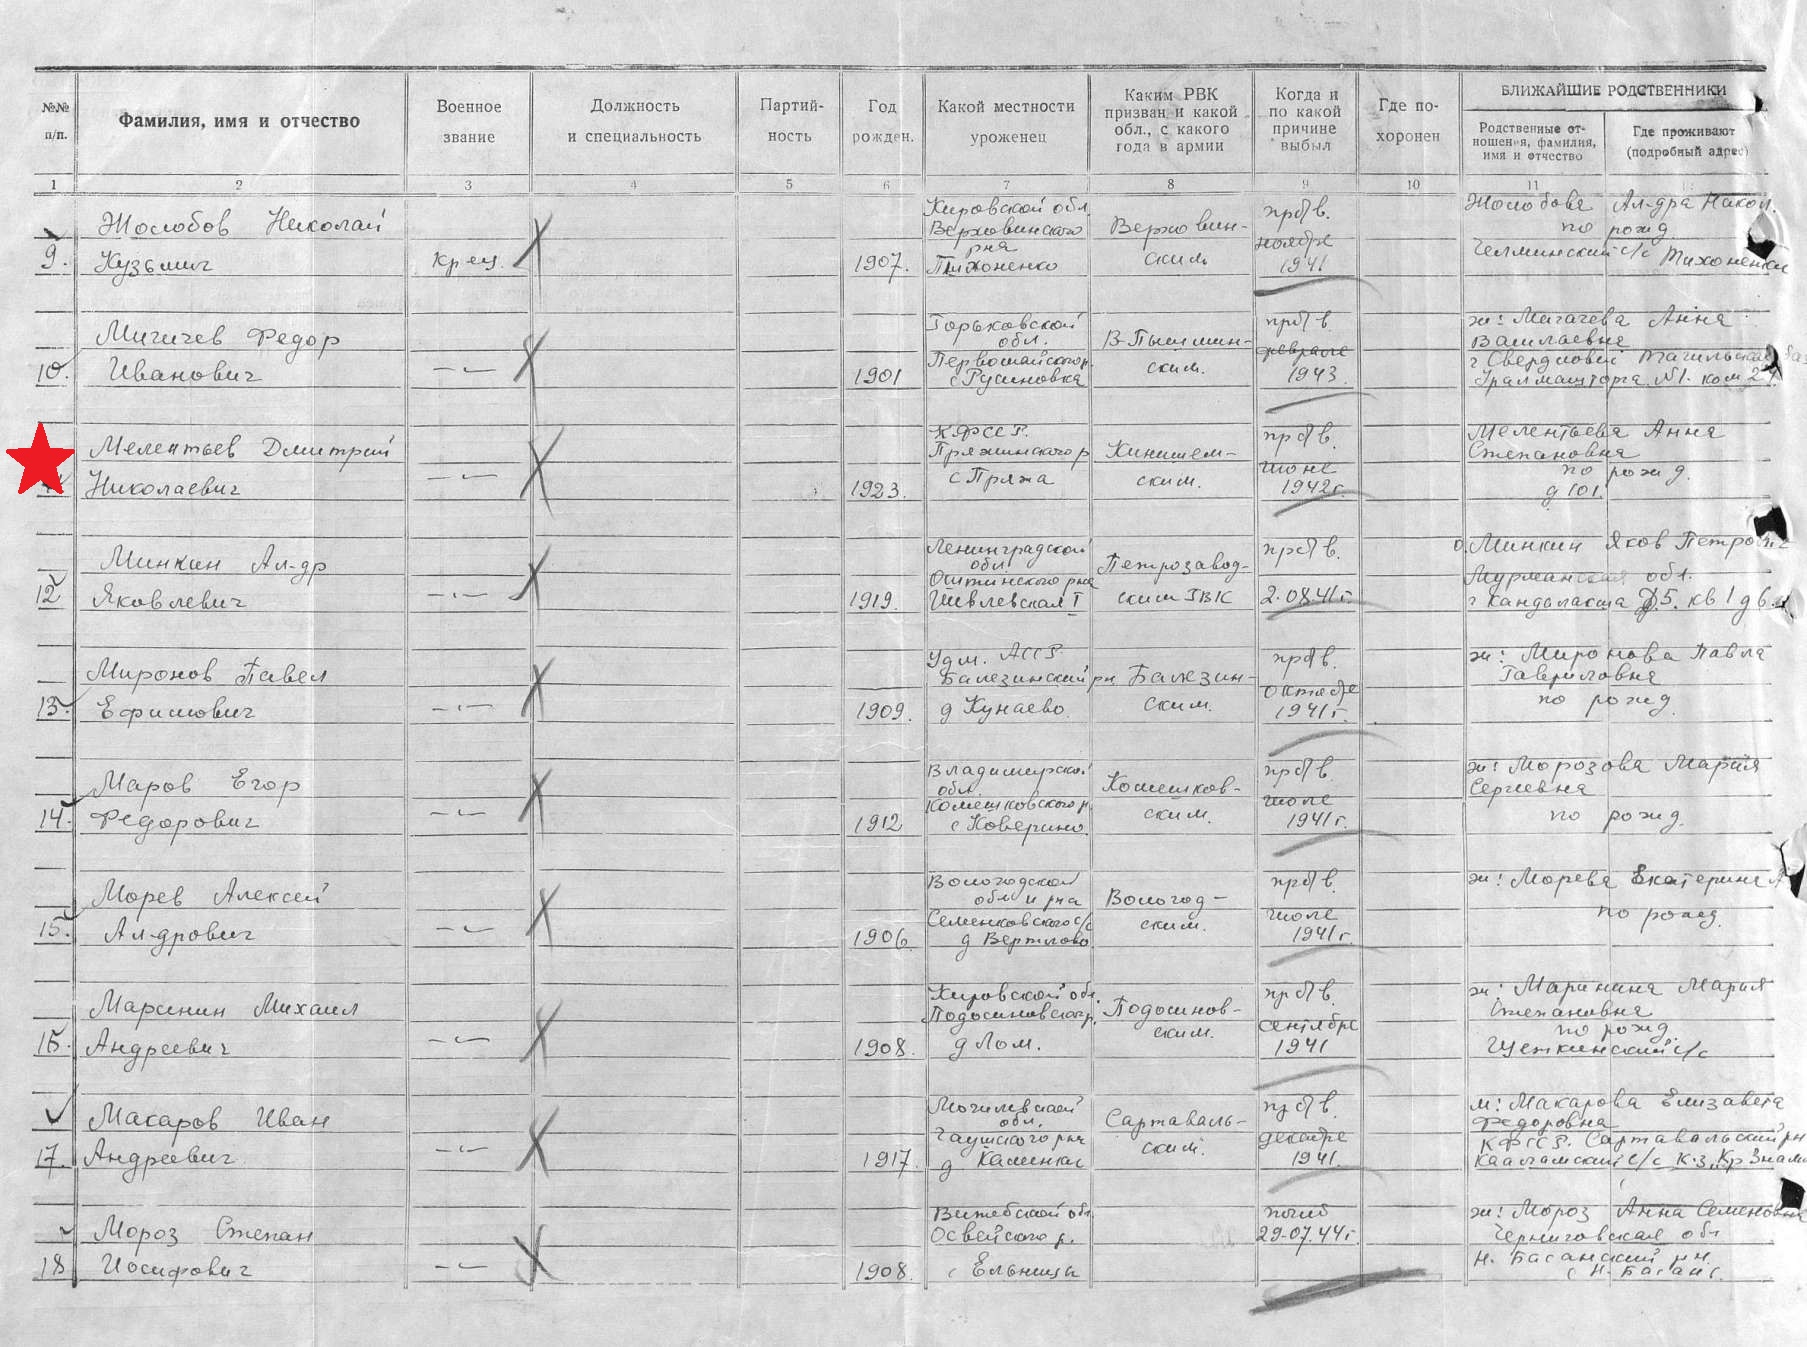 №№ п/п.
Фамилия, имя и отчество
Военное звание
Должность и специальность
Партий-ность
Год рожден.
Какой местности уроженец
Каким РВК призван и какой обл., с какого года в армии
Когда и по какой причине выбыл
Где по-хоронен
БЛИЖАЙШИЕ РОДСТВЕННИКИ
Родственные от-ношения, фамилия, имя и отчество
Где проживают (подробный адрес)
1 2 3 4 5 6 7 8 9 10 11
Жолобов Николай
9. Кузьмич
Крец.
1907.
Кировской обл.
Верховинского
рна
Тихоненко
Верховин-
ским
прб/в.
ноябре
1941
Жолобова Ал-дра Никол.
по рожд
Челминский с/с Тихоненки
Мигичев Федор
10. Иванович
1901
Горьковской
обл.
Первомайского р.
с Русиновка
В-Пышмин-
ским.
прб/в.
феврале
1943.
ж: Мигачева Анна
г Свердловск Тагильская
Уралмашторга №1. ком 27.
Мелентьев Дмитрий
Николаевич
1923.
КФССР.
Пряжинского р
с Пряжа
Кинешем-
ским.
прб/в.
июне
1942г.
Мелентьева Анна
Степановна
по рожд.
д 101.
Минкин Ал-др
12 Яковлевич
1919.
Ленинградской
обл.
Оштинского рна
I
Петрозавод-
ским ГВК
прб/в.
2.08.41г.
о. Минкин Яков Петрович
Мурманская обл.
г Кандалакша Д.5. кв 1 д 6
Миронов Павел
13. Ефимович
1909.
Удм. АССР.
Балезинский рн
д Кунаево.
Балезин-
ским.
прб/в.
октябре
1941г.
ж: Миронова Павла
Гавриловна
по рожд.
Маров Егор
14. Федорович
1912
Владимирской
обл.
Комешковского р.
с Коверино.
Комешков-
ским.
прб/в.
июле
1941г.
ж: Морозова Мария
Сергеевна
по рожд.
Морев Алексей
15. Ал-дрович
1906.
Вологодской
обл и рна
Семенковского с/с
д Вертлово
Вологод-
ским.
прб/в.
июле
1941г.
ж: Морева Екатерина А
по рожд.
Марсинин Михаил
16. Андреевич
1908.
Кировской обл.
Подосиновского р.
д Лом.
Подосинов-
ским.
прб/в.
сентябре
1941
ж: Маринина Мария
Степановна
по рожд.
Щеткинский с/с
Макаров Иван
17. Андреевич
1917.
Могилевской
обл.
Чаусского рна
д Каменка
Сартаваль-
ским.
прб/в.
декабре
1941.
м: Макарова Елизавета
Федоровна
КФССР. Сартавальский рн
Кааламский с/с к-з. Кр Знамя
Мороз Степан
18 Иосифович
1908.
Витебской обл
Освейского р.
с Ельницы
погиб
29.07.44г.
ж: Мороз Анна Семеновна
Черниговская обл
Н. Басанский рн.
с Н. Басань.